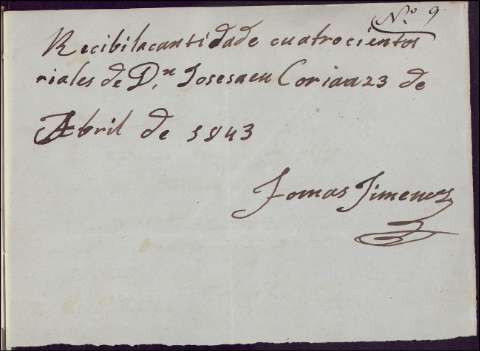 Nº 9.
Recibilacantidade cuatrocientos
riales de D.n Josesaen Coriaa 23 de
Abril de 1843
Tomas Jimenez